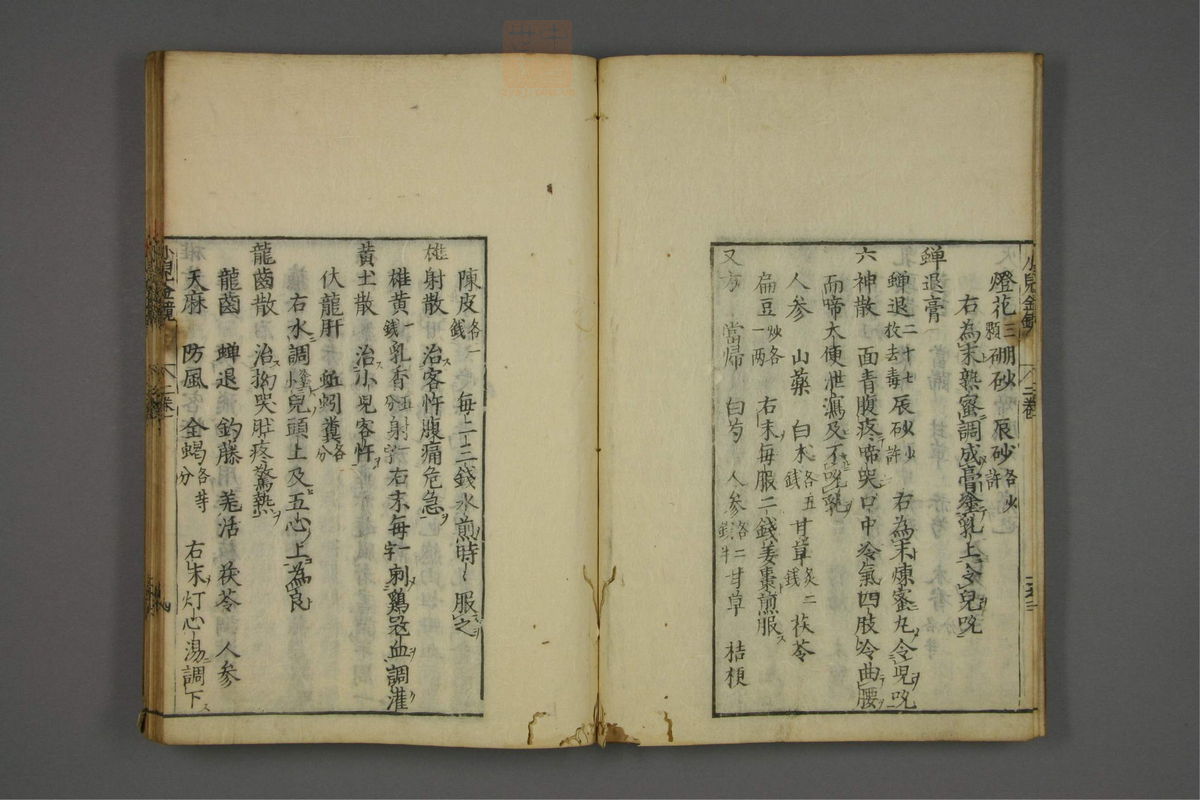 燈花三顆硼砂 辰砂各少許
右為末熟蜜調成膏塗乳上令兒吮
蟬退膏
蟬退二十七枚去毒辰砂少許 右為末煉蜜丸令児吮
六神散 面青腹疼啼哭口中冷氣四肢冷曲腰
而啼大便泄瀉及不吮乳
人参 山薬 白朮各五錢甘草炙二錢茯苓
扁豆炒各一两 右末毎服二錢姜棗煎服
又方 當帰 白芍 人参各二錢半甘草 桔梗
陳皮各一錢 毎上二三錢水煎時〻服之
雄射散 治客忤腹痛危急
雄黄一錢乳香五分射一字右末毎一字刺鷄冠血調灌
黄土散 治小児客忤
伏龍肝 蚯蚓糞各等分
右水調塗兒頭上及五心上為良
龍齒散 治拗哭肚疼驚熱
龍齒 蟬退 釣藤 羌活 茯苓 人参
天麻 防風 全蝎各等分 右末灯心湯調下
小兒金鏡 二巻